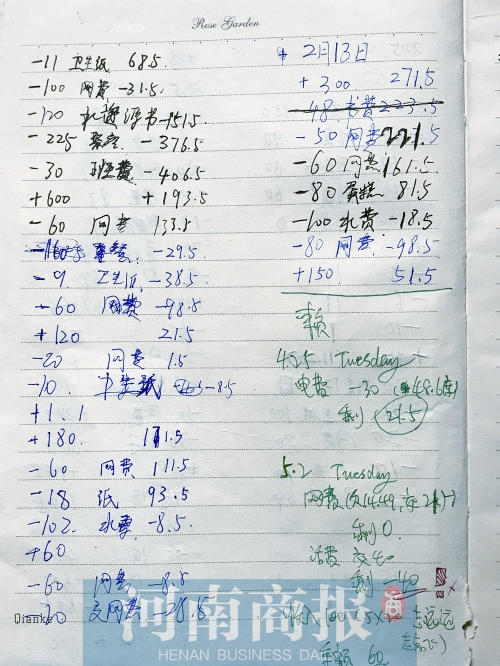 Rose Garden
-11 卫生纸 68.5
-100 网费 -31.5.
-120 -151.5
-225 聚餐 -376.5
-30 班费 -406.5
+600 +193.5
-60 网费 133.5
-29.5
-9 卫生纸 -38.5
-60 网费 -98.5
+120 21.5
-20 网费 1.5
-10 卫生纸 -8.5
+1.1
+180. 171.5
-60 网费 111.5
-18 纸 93.5
-102 水票 -8.5
+60
-60 网费 -8.5
-20 交网费 -28.5
Qianke
+ 2月13日
+300 271.5
-48 书费 223.5
-50 网费 221.5
-60 网费 161.5
-80 蛋糕 81.5
-100 水费 -18.5
-80 网费 -98.5
+150 51.5
余额
4.25 Tuesday
电费 -30 (48.6度)
剩 21.5
5.2 Tuesday
网费(欠14.49, 交21.5)
剩0
话费 交40
剩 -40
收 100
余额 60
河南商报
HENAN BUSINESS DAILY